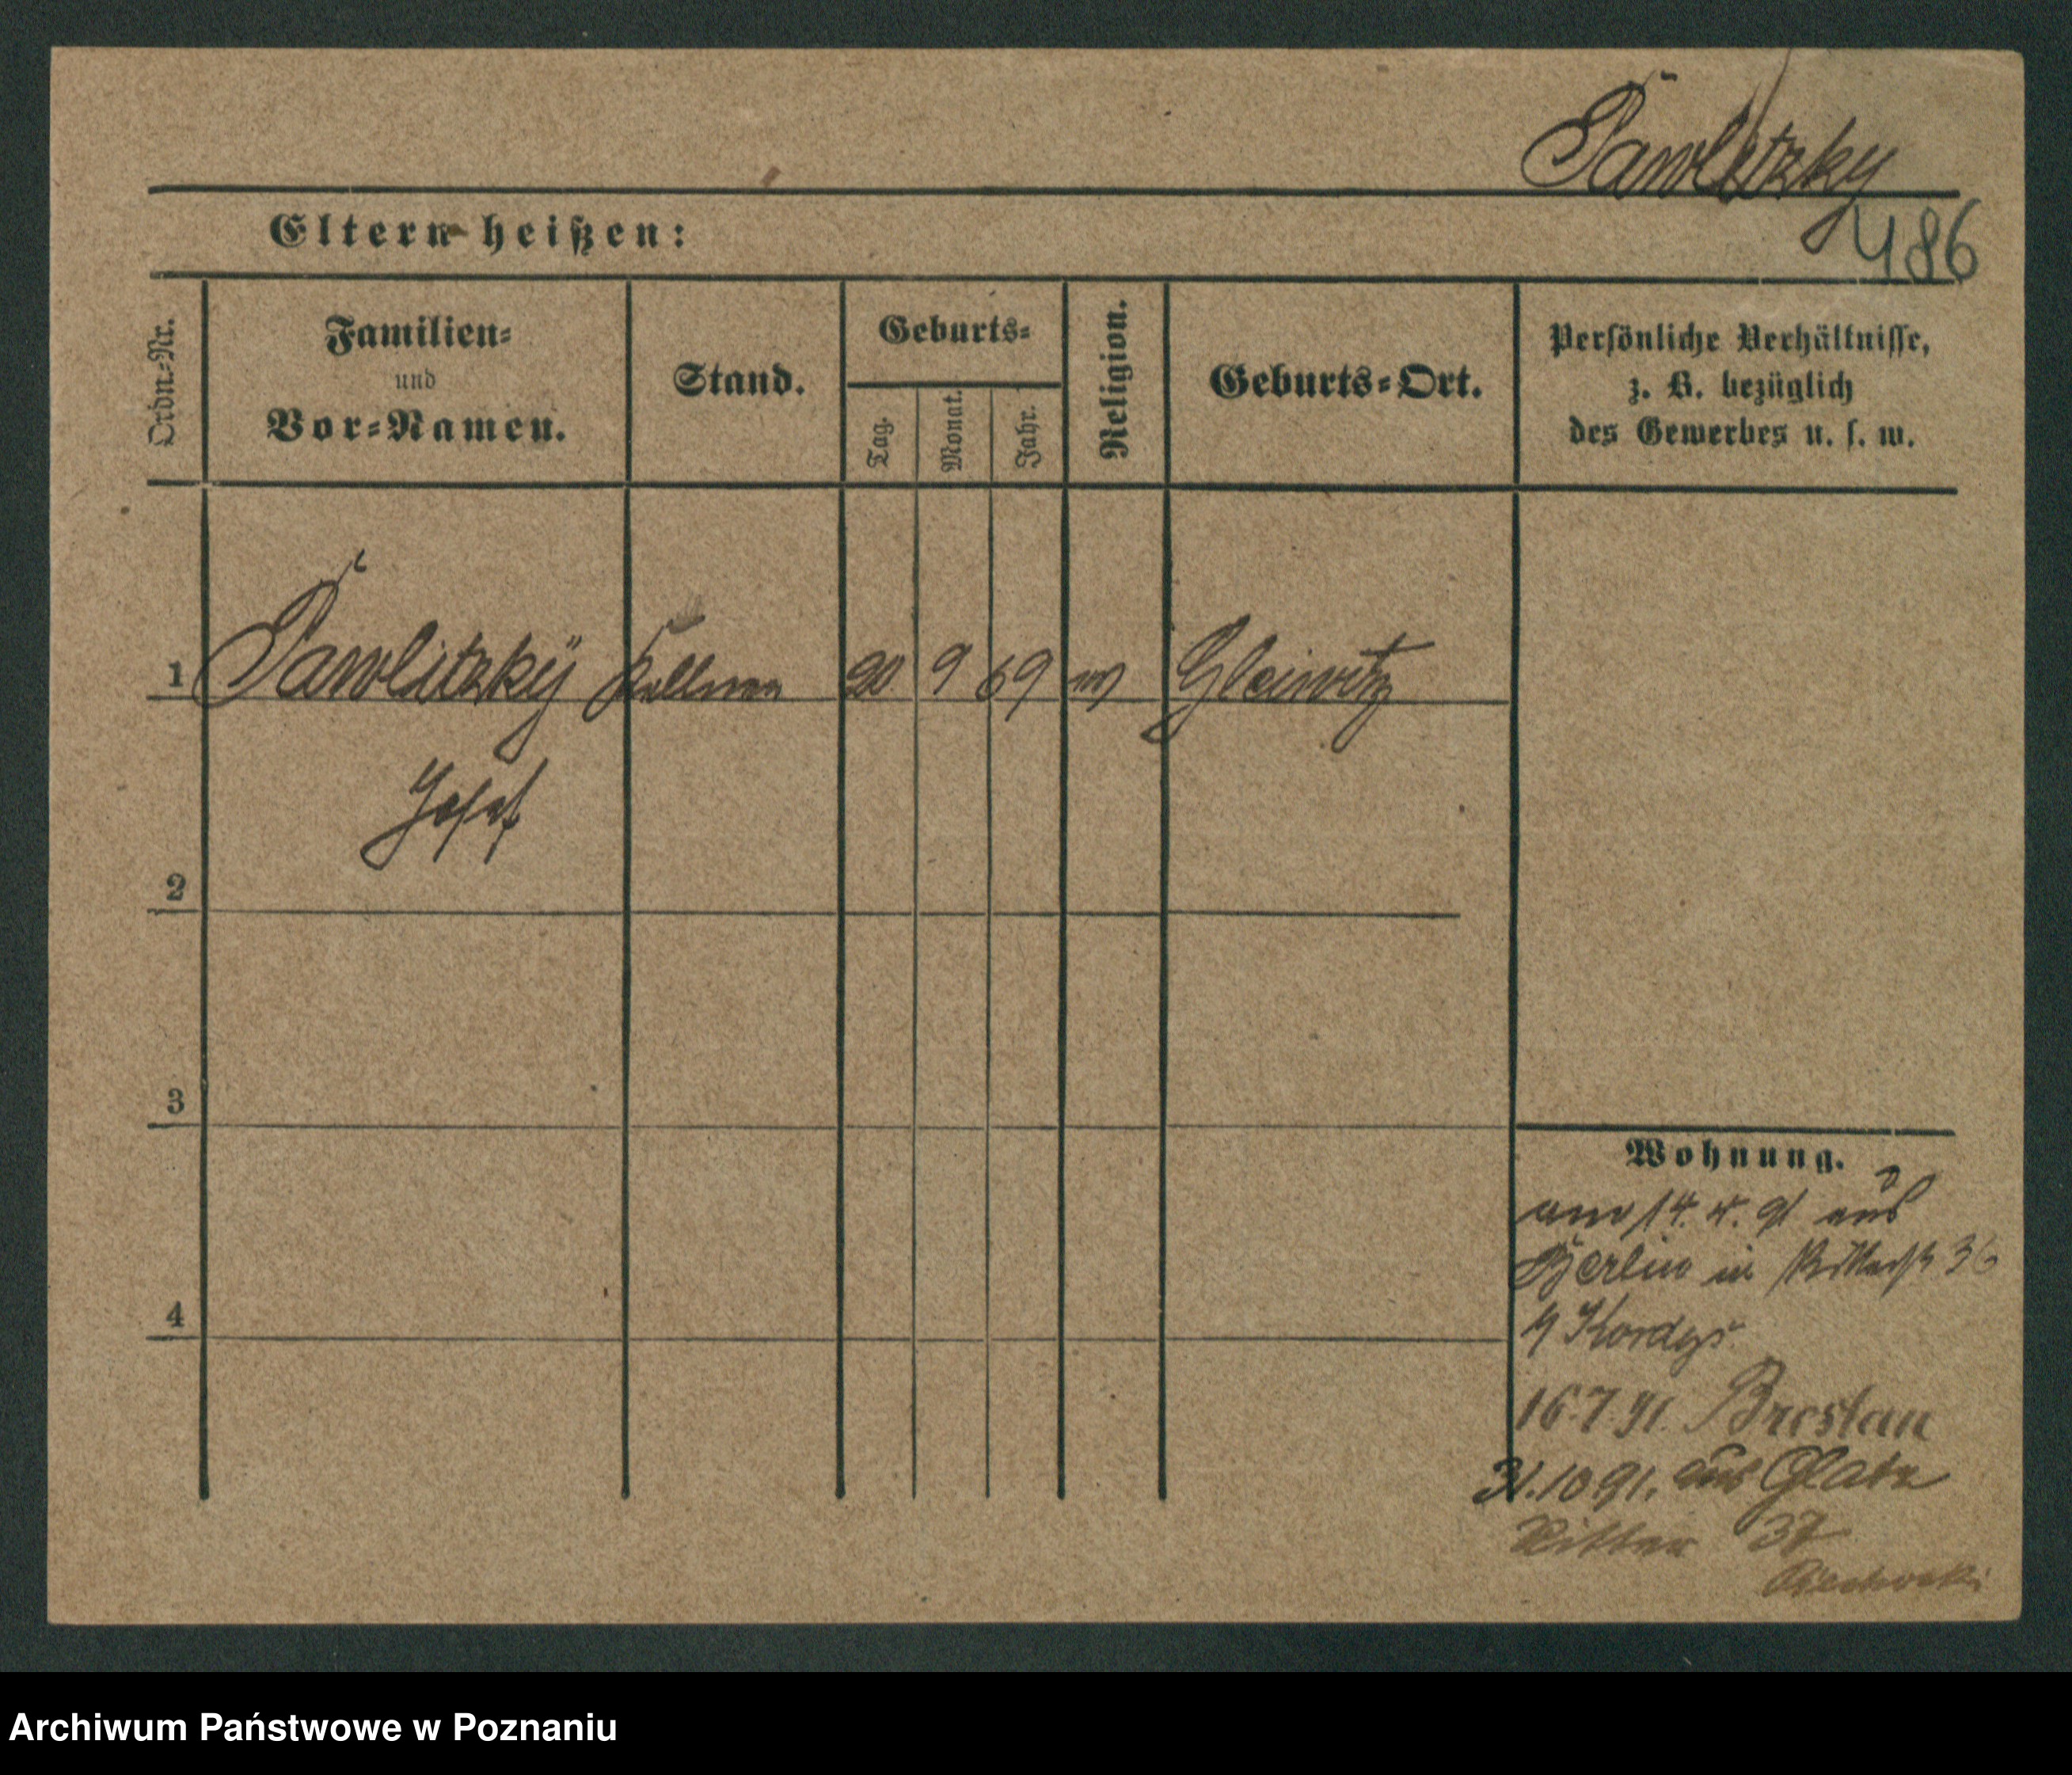 Pawlitzky
486
Eltern heißen:
Ordn=Nr.
Familien=
und
Vor=Namen.
Stand.
Geburts=
Tag.
Monat.
Jahr.
Religion.
Geburts=Ort.
Persönliche Verhältnisse,
z. B. bezüglich
des Gewerbes u. s. w.
1 Pawlitzky Kellner 20 9 69 Gleiwitz
Josef
2
3
4
Wohnung.
14. 4. 91 aus
Berlin in 36
Kordys
16.7.91. Breslau
31.10 91. aus Glatz
Ritter 37
Archiwum Państwowe w Poznaniu